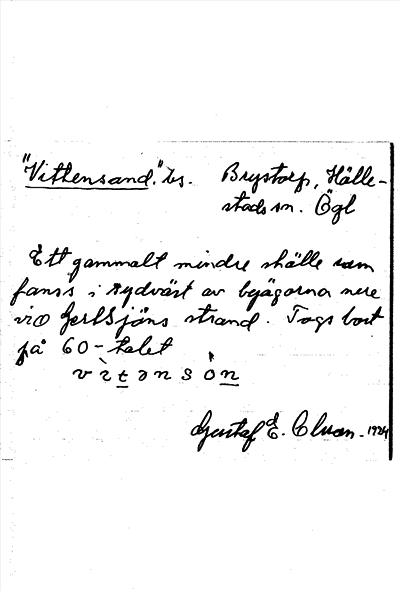 "Vittensand." bs. Brystorp, Hälle-
stads sn. Ögl
Ett gammalt mindre ställe som
fanns i sydväst av byägorna nere
vid sjöns strand. Togs bort
på 60-talet
Gustaf E. 1924